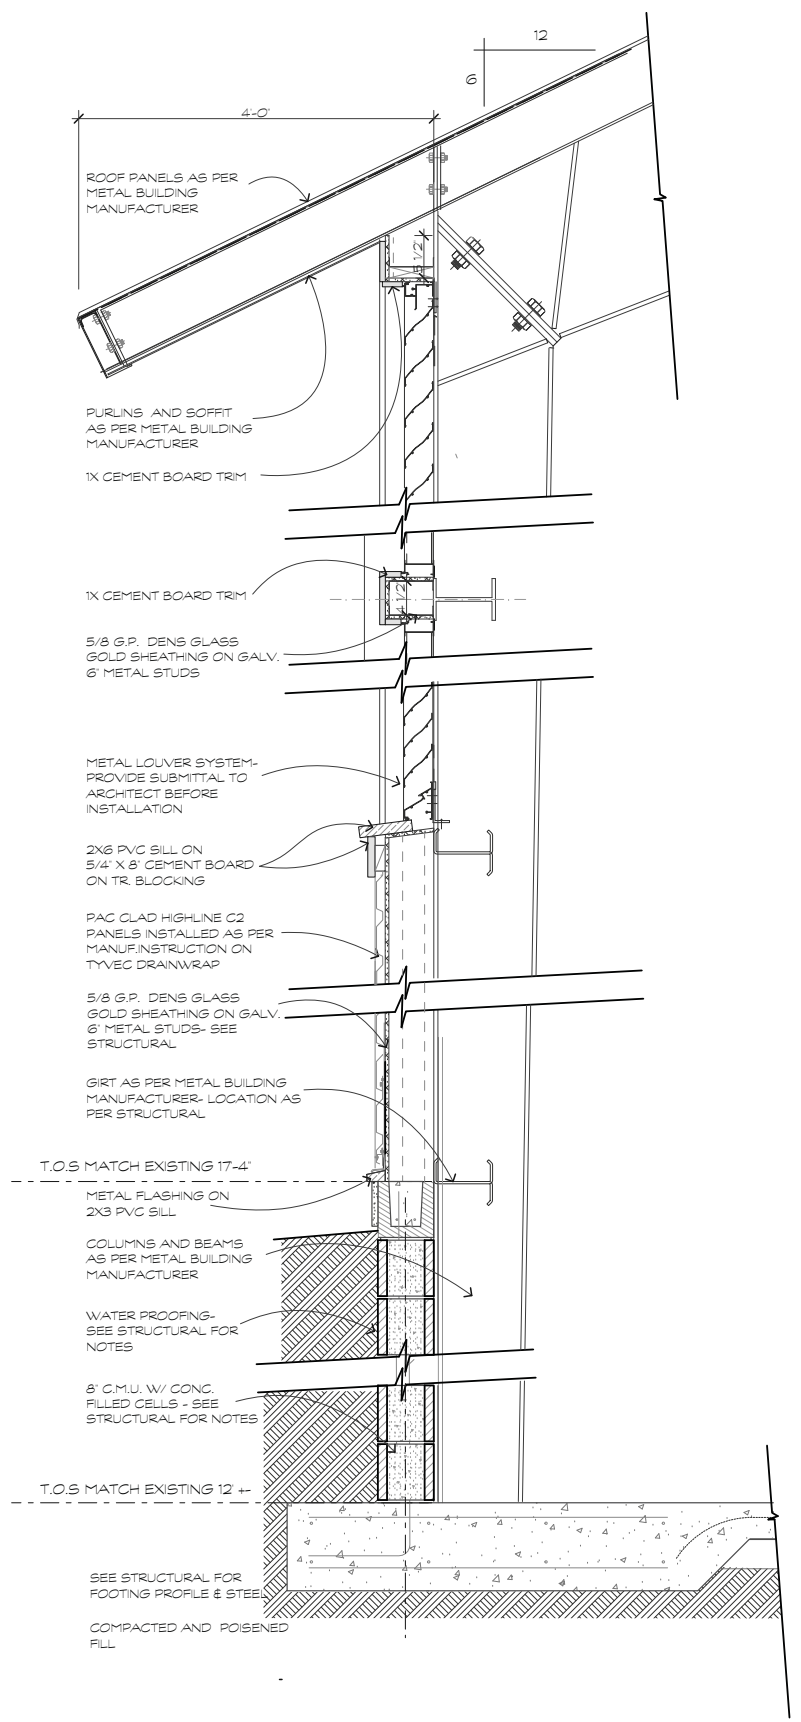 12
6
4'-0"
ROOF PANELS AS PER
METAL BUILDING
MANUFACTURER
5 1/2"
PURLINS AND SOFFIT
AS PER METAL BUILDING
MANUFACTURER
1X CEMENT BOARD TRIM
1X CEMENT BOARD TRIM
4 1/2"
5/8 G.P. DENS GLASS
GOLD SHEATHING ON GALV.
6" METAL STUDS
METAL LOUVER SYSTEM-
PROVIDE SUBMITTAL TO
ARCHITECT BEFORE
INSTALLATION
2X6 PVC SILL ON
5/4" X 8" CEMENT BOARD
ON TR. BLOCKING
PAC CLAD HIGHLINE C2
PANELS INSTALLED AS PER
MANUF.INSTRUCTION ON
TYVEC DRAINWRAP
5/8 G.P. DENS GLASS
GOLD SHEATHING ON GALV.
6" METAL STUDS- SEE
STRUCTURAL
GIRT AS PER METAL BUILDING
MANUFACTURER- LOCATION AS
PER STRUCTURAL
T.O.S MATCH EXISTING 17-4"
METAL FLASHING ON
2X3 PVC SILL
COLUMNS AND BEAMS
AS PER METAL BUILDING
MANUFACTURER
WATER PROOFING-
SEE STRUCTURAL FOR
NOTES
8" C.M.U. W/ CONC.
FILLED CELLS - SEE
STRUCTURAL FOR NOTES
T.O.S MATCH EXISTING 12' +-
SEE STRUCTURAL FOR
FOOTING PROFILE & STEEL
COMPACTED AND POISENED
FILL